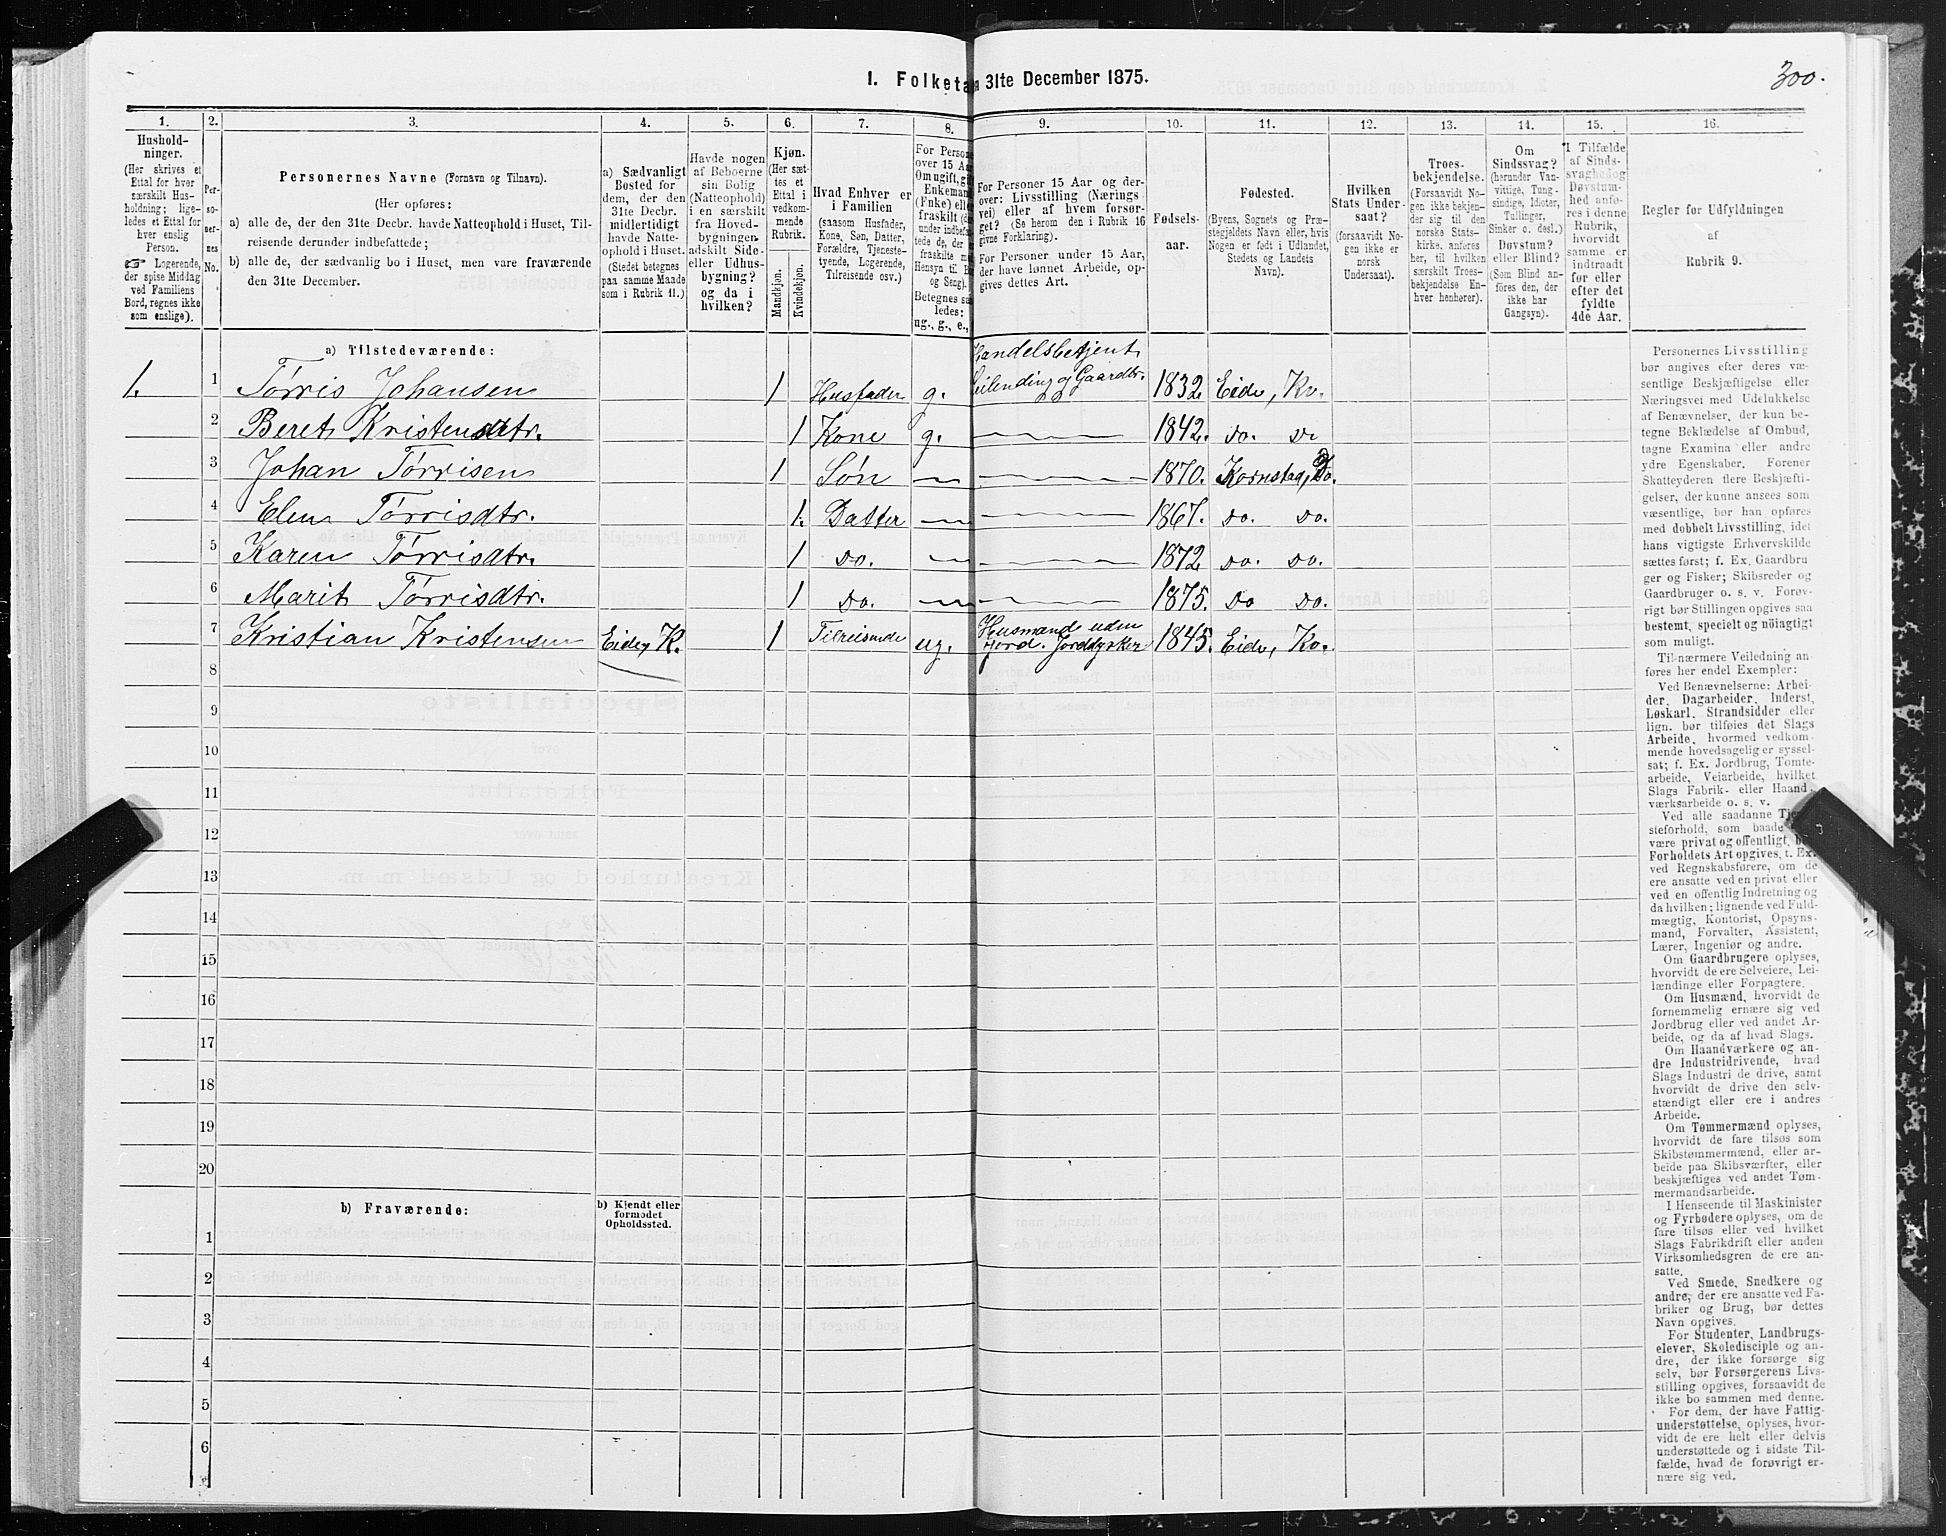 1. Folketa
n 31te December 1875.
300.
1.
2.
3.
4.
5.
6.
7.
8.
9.
10.
11.
12.
13.
14.
15.
16.
Husholdninger.
(Her skrives et
Ettal for hver
særskilt Husholdning;
ligeledes et Ettal for
hver enslig
Person.
☞ Logerende,
der spise Middag
ved Familiens
Bord, regnes ikke
som enslige).
Personernes
No.
Personernes Navne (Fornavn og Tilnavn).
(Her opføres:
a) alle de, der den 31te Decbr. havde Natteophold i Huset, Tilreisende derunder indbefattede;
b) alle de, der sædvanlig bo i Huset, men vare fraværende
den 31te December.
a) Sædvanligt
Bosted for
dem, der den
31te Decbr.
midlertidigt
havde Natteophold
i Huset.
(Stedet betegnes
paa samme Maade
som i Rubrik 11.)
Havde nogen
af Beboerne
sin Bolig
(Natteophold)
i en særskilt
fra Hovedbygningen
adskilt Side-
eller Udhusbygning?
og da i
hvilken?
Kjøn.
(Her sættes
et
Ettal i
vedkommende
Rubrik.
Mandkjøn.
Kvindekjøn.
Hvad Enhver er
i Familien
(saasom Husfader,
Kone, Søn, Datter,
Forældre, Tjenestetyende,
Logerende,
Tilreisende osv.)
For Person
over 15 Aa
Om ugift, g
Enkemand
(Enke) ell
fraskilt
Betegnes sa
ledes:
ug., g., e.,
For Personer 15 Aar og derover:
Livsstilling (Næringsvei)
eller af hvem forsørget?
(Se herom den i Rubrik 16
givne Forklaring).
For Personer under 15 Aar,
der have lønnet Arbeide, opgives
dettes Art.
Fødselsaar.
Fødested.
(Byens, Sognets og Præstegjeldets
Navn eller, hvis
Nogen er født i Udlandet,
Stedets og Landets
Navn).
Hvilken
Stats Undersaat?
(forsaavidt Nogen
ikke er
norsk
Undersaat).
Troesbekjendelse.
(Forsaavidt Nogen
ikke bekjender
sig til den
norske Statskirke,
anføres
her, til hvilken
særskilt Troesbekjendelse
Enhver
henhører).
Om
Sindssvag?
(herunder Vanvittige,
Tungsindige,
Idioter,
Tullinger,
Sinker o. desl.)
Døvstum?
eller Blind?
(Som Blind anføres
den, der
ikke har
Gangsyn).
I Tilfælde
af Sindssvaghed
og
Døvstumhed
anføres
i denne
Rubrik,
hvorvidt
samme er
indtraadt
før eller
efter det
fyldte
4de Aar.
Regler før Udfyldningen
af
Rubrik 9.
a) Tilstedeværende:
1. 1 Tørris Johansen 1 Husfader g. Handelsbetjent, Leilending og Gaardbr. 1832 Eide, Kv.
2 Beret Kristensdtr. 1 Kone g. 1842. do. do
3 Johan Tørrisen 1 Søn 1870. Kornstad, do.
4 Elen Tørrisdtr. 1. Datter 1867. do. do.
5 Karen Tørrisdtr. 1 do. 1872 do. do.
6 Marit Tørrisdtr. 1 do. 1875. do do.
7 Kristian Kristensen Eide, K. 1 Tilreisende ug. Husmand uden Jord. Jorddyrker 1845. Eide, Kv.
8
9
10
11
12
13
14
15
16
17
18
19
20
b) Fraværende:
b) Kjendt eller
formodet
Opholdssted.
1
2
3
4
5
6
Personernes Livsstilling
bør angives efter deres væsentlige
Beskjæftigelse eller
Næringsvei med Udelukkelse
af Benævnelser, der kun betegne
Beklædelse af Ombud,
tagne Examina eller andre
ydre Egenskaber. Forener
Skatteyderen flere Beskjæftigelser,
der kunne ansees som
væsentlige, bør han opføres
med dobbelt Livsstilling, idet
hans vigtigste Erhvervskilde
sættes først; f. Ex. Gaardbruger
og Fisker; Skibsreder og
Gaardbruger o. s. v. Forøvrigt
bør Stillingen opgives saa
bestemt, specielt og nöiagtigt
som muligt.
Til nærmere Veiledning anføres
her endel Exempler:
Ved Benævnelserne: Arbeider,
Dagarbeider, Inderst,
Løskarl, Strandsidder eller
lign. bør tilføies det Slags
Arbeide, hvormed vedkommende
hovedsagelig er sysselsat;
f. Ex. Jordbrug, Tomtearbeide,
Veiarbeide, hvilket
Slags Fabrik- eller Haandværksarbeide
o. s. v.
Ved alle saadanne Tjenesteforhold,
som baade
være privat og offentligt,
Forholdets Art opgives, t. Ex.
ved Regnskabsførere, om de
ere ansatte ved en privat eller
ved en offentlig Indretning og
da hvilken; lignende ved Fuldmægtig,
Kontorist, Opsynsmand,
Forvalter, Assistent,
Lærer, Ingeniør og andre.
Om Gaardbrugere oplyses,
hvorvidt de ere Selveiere, Leilændinge
eller Forpagtere.
Om Husmænd, hvorvidt de
fornemmelig ernære sig ved
Jordbrug eller ved andet Arbeide,
og da af hvad Slags.
Om Haandværkere og andre
Industridrivende, hvad
Slags Industri de drive, samt
hvorvidt de drive den selvstændigt
eller ere i andres
Arbeide.
Om Tømmermænd oplyses,
hvorvidt de fare tilsøs som
Skibstømmermænd, eller arbeide
paa Skibsværfter, eller
beskjæftiges ved andet Tømmermandsarbeide.
I Henseende til Maskinister
og Fyrbødere oplyses, om de
fare tilsøs eller ved hvilket
Slags Fabrikdrift eller anden
Virksomhedsgren de ere ansatte.
Ved Smede, Snedkere og
andre, der ere ansatte ved Fabriker
og Brug, bør dettes
Navn opgives.
For Studenter, Landbrugselever,
Skoledisciple og andre,
der ikke forsørge sig
selv, bør Forsørgerens Livsstilling
opgives, forsaavidt de
ikke bo sammen med denne.
For dem, der have Fattigunderstøttelse,
oplyses, hvorvidt
de ere helt eller delvis
understøttede og i sidste Tilfælde,
hvad de forøvrigt ernære
sig ved.